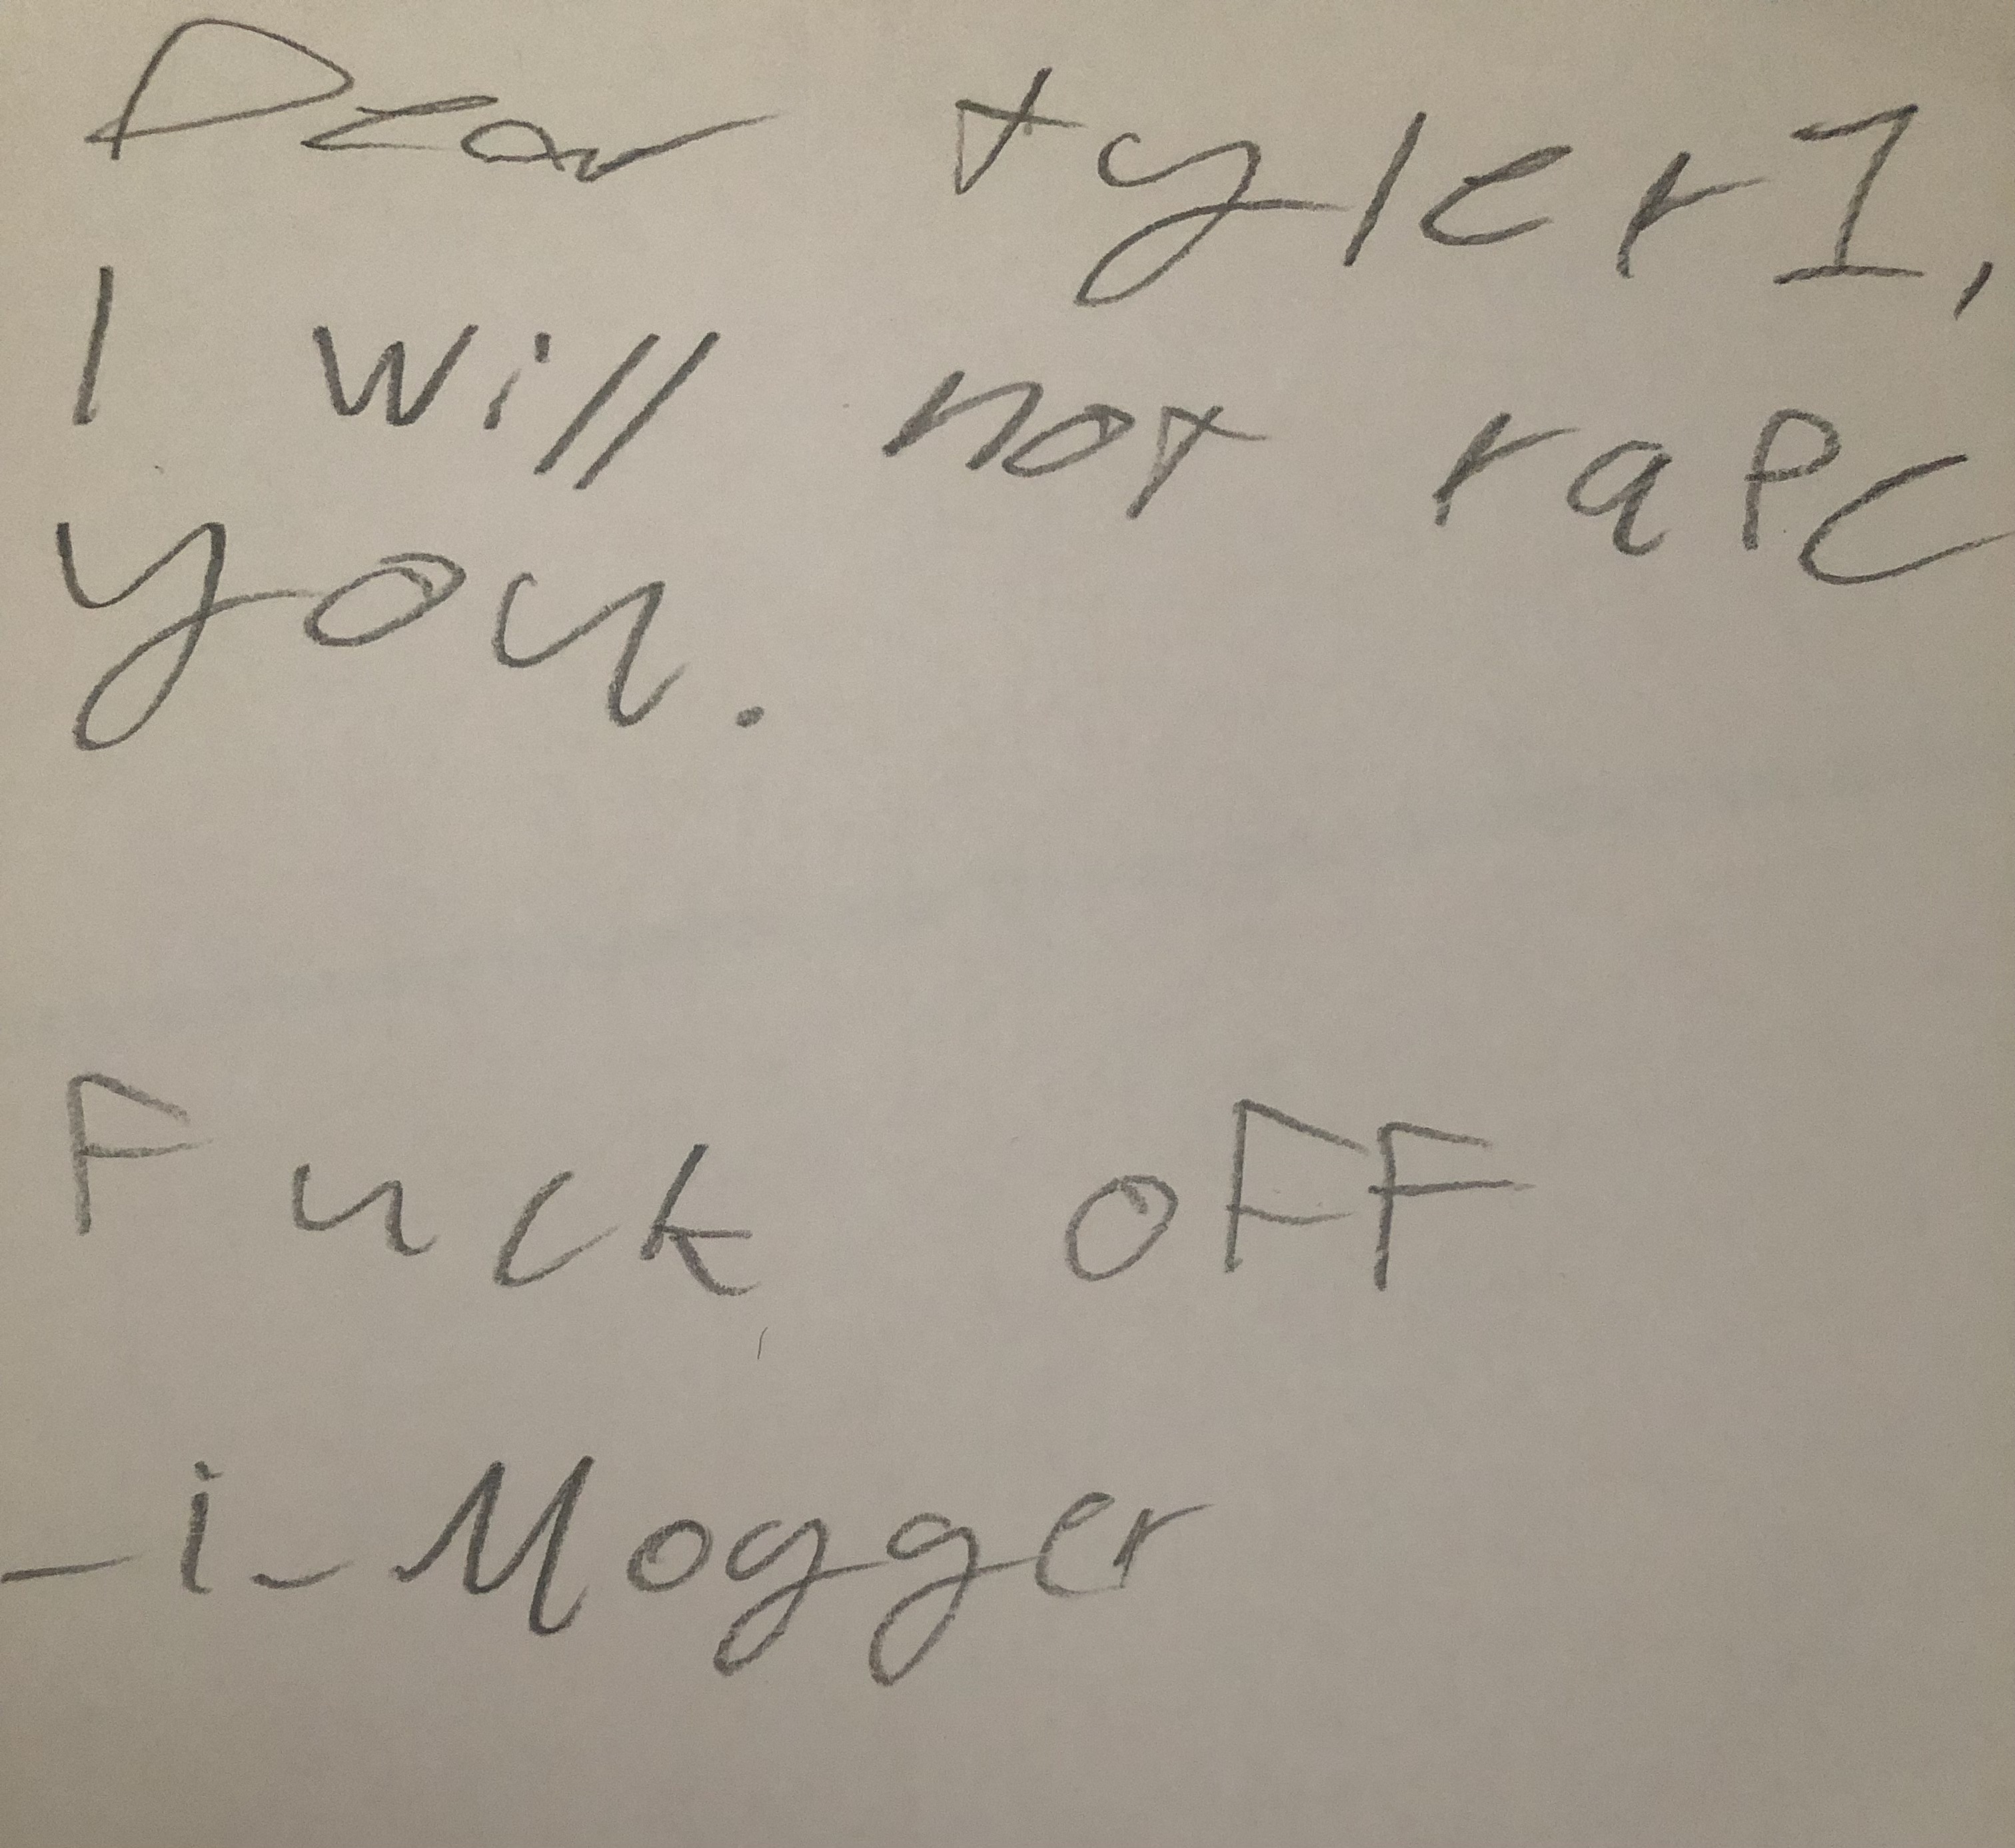 Dear tyler1,
I will not rape
you.
Fuck oFF
-i-Mogger